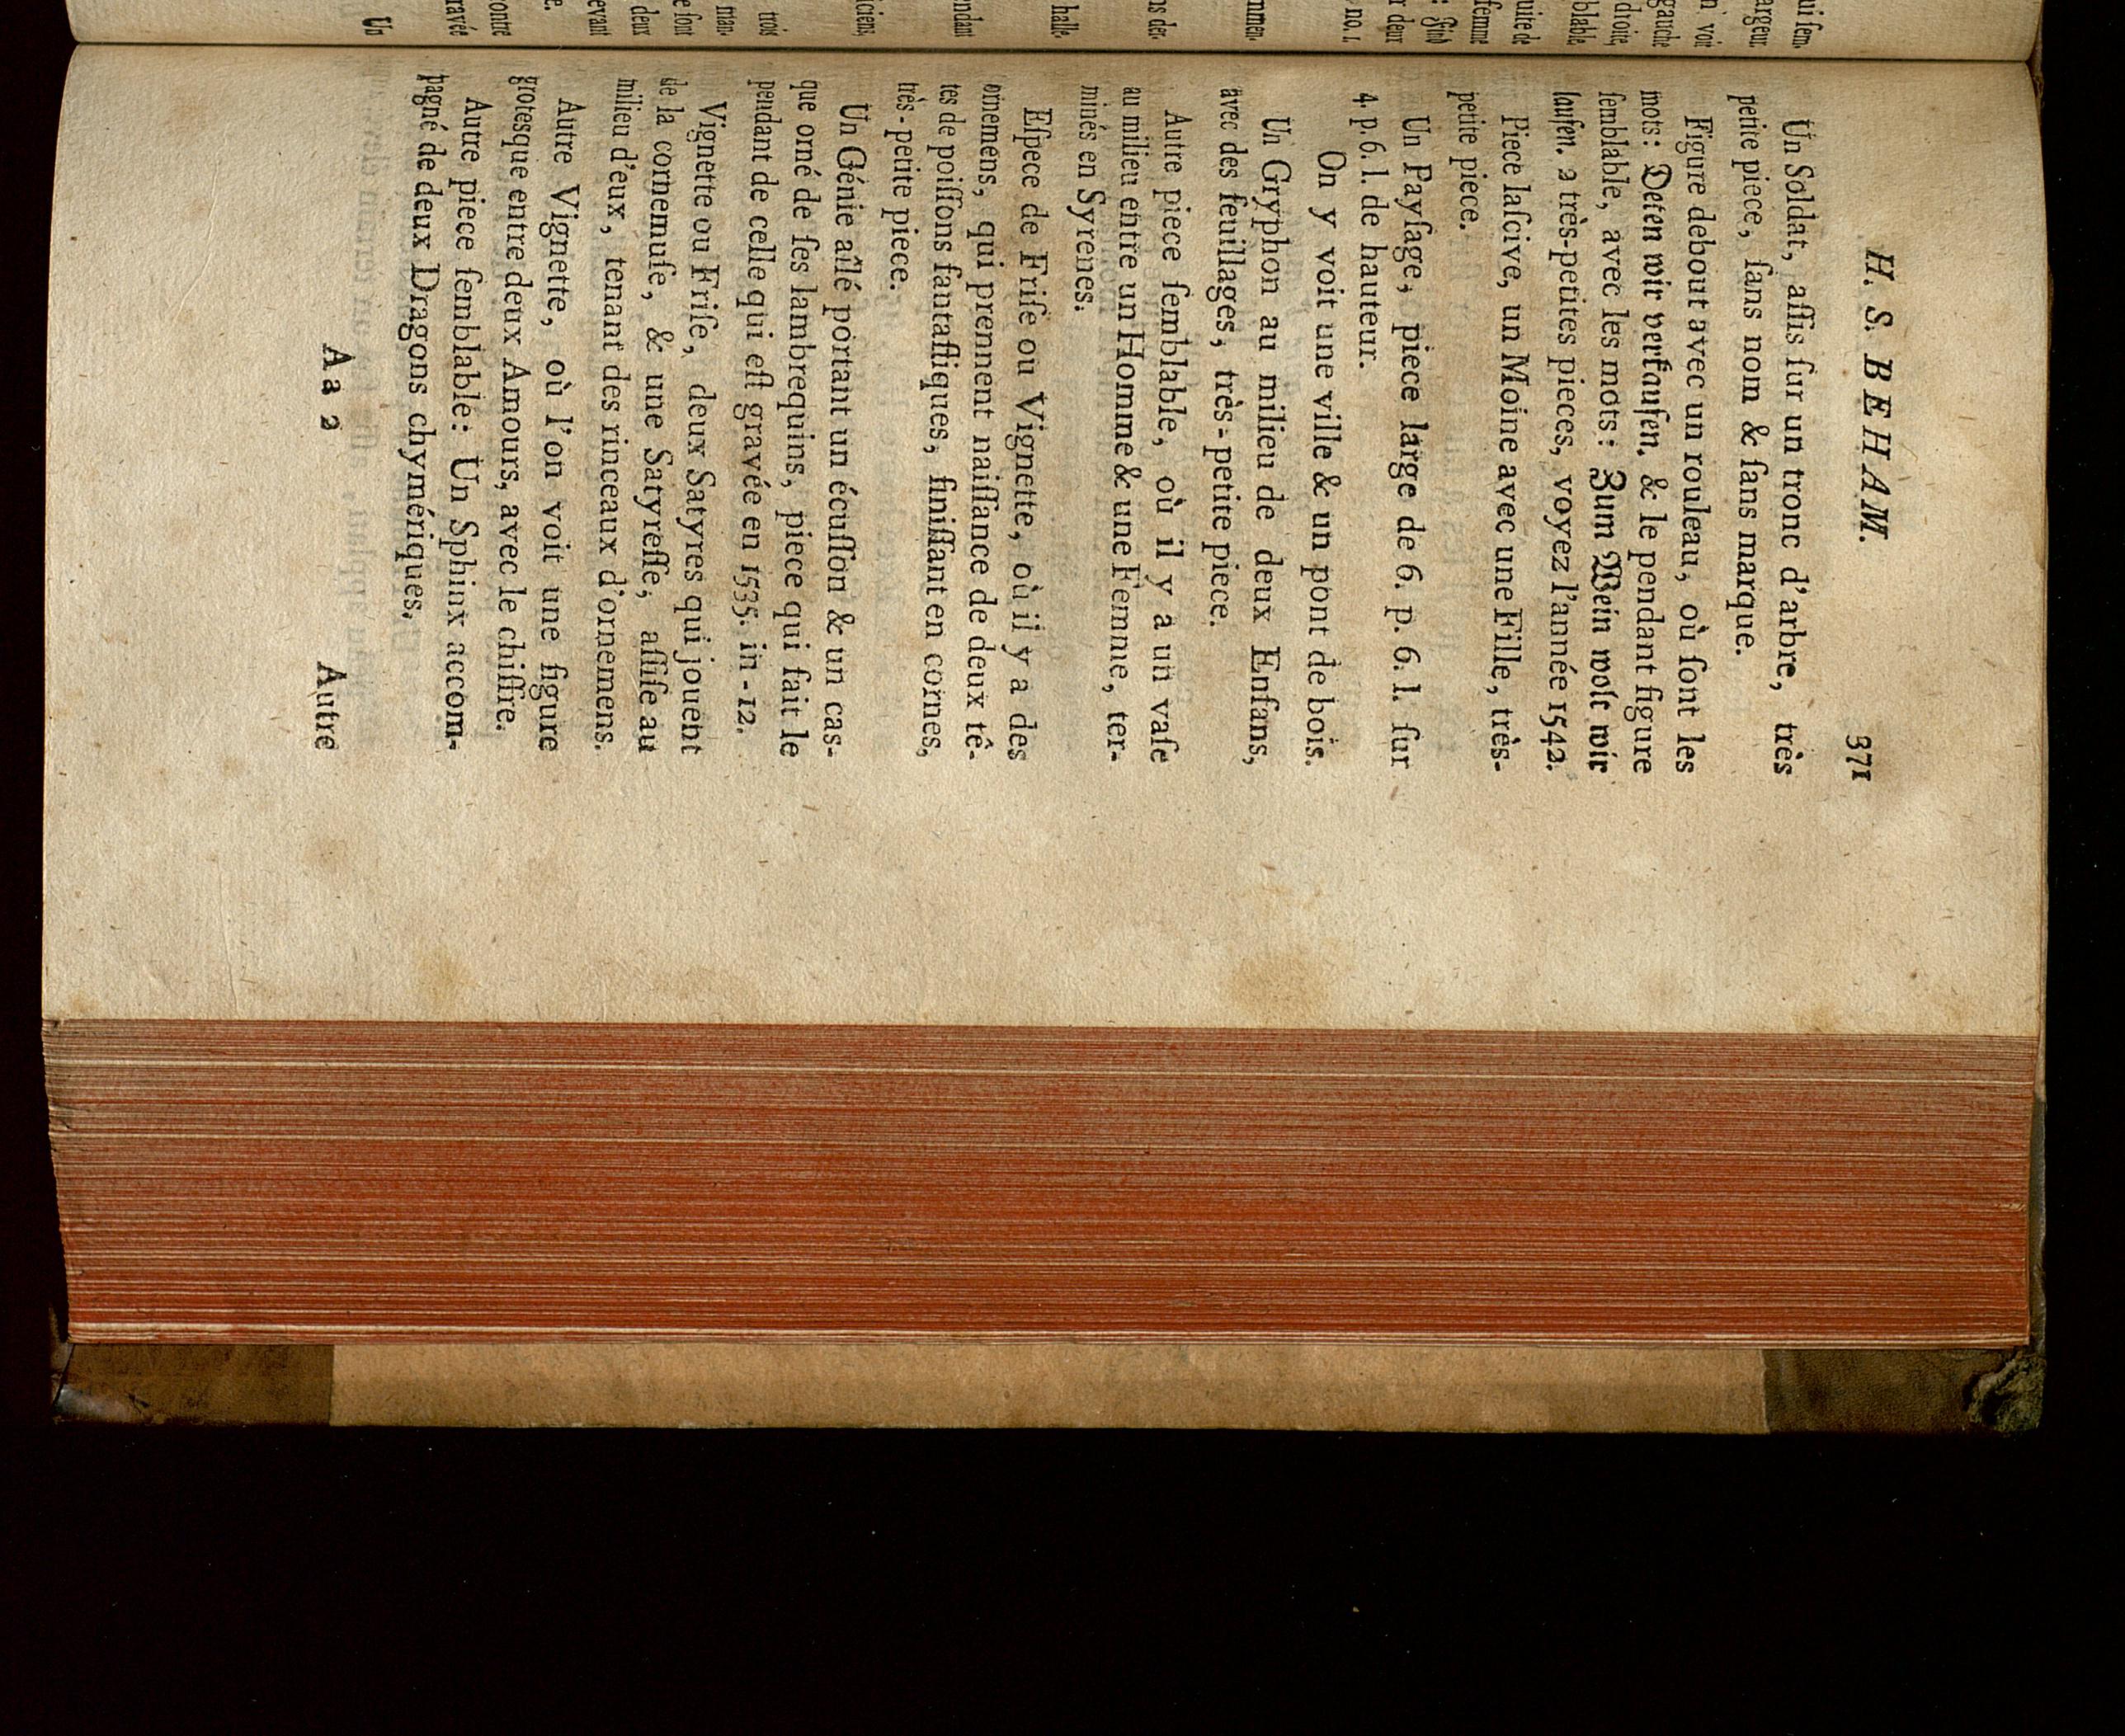 H. S. BEHAM. 371
Un Soldat, aſſis ſur un tronc d'arbre, très
petite piece, ſans nom & ſans marque.
Figure debout avec un rouleau, où ſont les
mots: Deten wir verkauſen. & le pendant figure
ſemblable, avec les mots: Zum Wein wolt wir
lauſen. 2 très-petites pieces, voyez l'année 1542.
Piece laſcive, un Moine avec une Fille, très-
petite piece.
Un Payſage, piece large de 6. p. 6. l. ſur
4. p. 6. l. de hauteur.
On y voit une ville & un pont de bois.
Un Gryphon au milieu de deux Enfans,
avec des feuillages, très-petite piece.
Autre piece ſemblable, où il y a un vaſe
au milieu entre un Homme & une Femme, ter-
minés en Syrenes.
Eſpece de Friſe ou Vignette, où il y a des
ornemens, qui prennent naiſſance de deux tê-
tes de poiſſons fantaſtiques, finiſſant en cornes,
très-petite piece.
Un Génie aîlé portant un écuſſon & un cas-
que orné de ſes lambrequins, piece qui fait le
pendant de celle qui eſt gravée en 1535. in-12.
Vignette ou Friſe, deux Satyres qui jouent
de la cornemuſe, & une Satyreſſe, aſſiſe au
milieu d'eux, tenant des rinceaux d'ornemens.
Autre Vignette, où l'on voit une figure
grotesque entre deux Amours, avec le chiffre.
Autre piece ſemblable: Un Sphinx accom-
pagné de deux Dragons chymériques.
A a 2 Autre